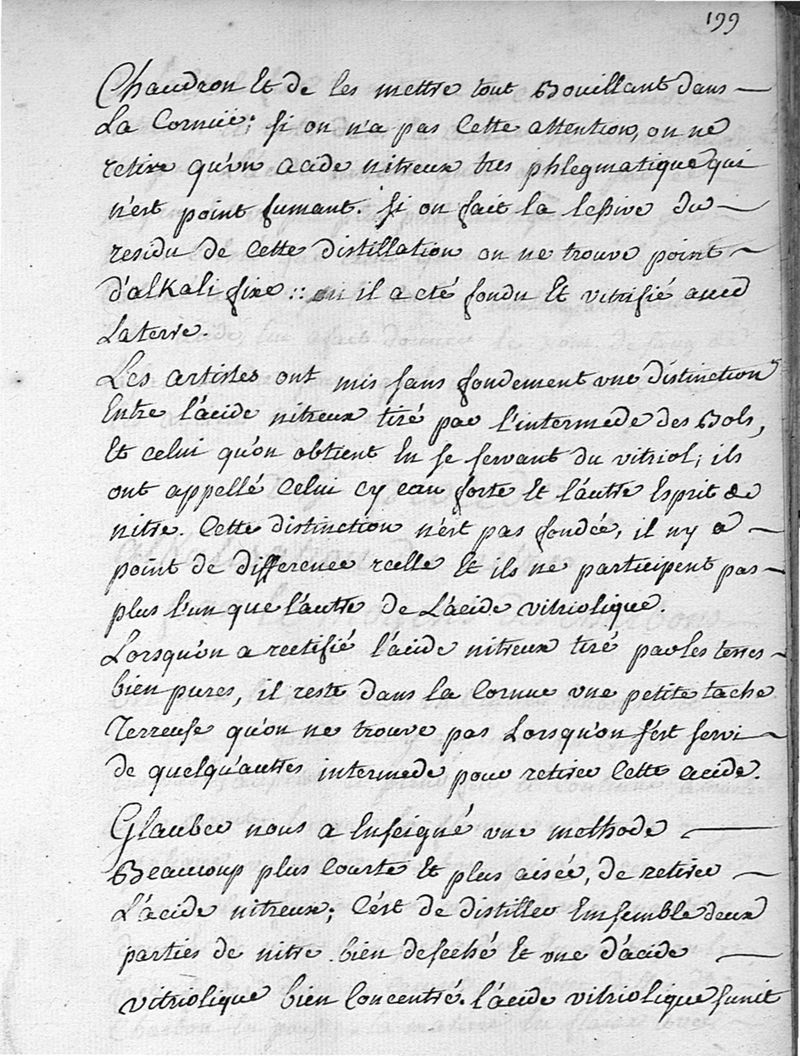 199
Chaudron Et de les mettre tout Bouillant dans
La Cornüe; si on n'a pas Cette attention, on ne
retire qu'un acide nitreux tres phlegmatique qui
n'est point fumant. si on fait la lessive du
residu de Cette distillation on ne trouve point
d'alkali fixe :: il a eté fondu Et vitrifié avec
La terre.
Les artistes ont mis sans fondement une distinction
Entre l'acide nitreux tiré par l'intermede des Bols,
Et celui qu'on obtient En se servant du vitriol; ils
ont appellé Celui cy eau forte Et l'autre Esprit de
nitre. Cette distinction n'est pas fondée, il ny a
point de difference reelle Et ils ne participent pas
plus l'un que l'autre de L'acide vitriolique.
Lorsqu'on a rectifié l'acide nitreux tiré par les terres
bien pures, il reste dans la Cornue une petite tache
Terreuse qu'on ne trouve pas Lorsqu'on s'est servi
de quelqu'autres intermede pour retirer Cette acide.
Glauber nous a Enseigné une methode
Beaucoup plus Courte Et plus aisée, de retirer
L'acide nitreux; C'est de distiller Ensemble deux
parties de nitre bien desseché Et une d'acide
vitriolique bien Concentré. l'acide vitriolique s'unit